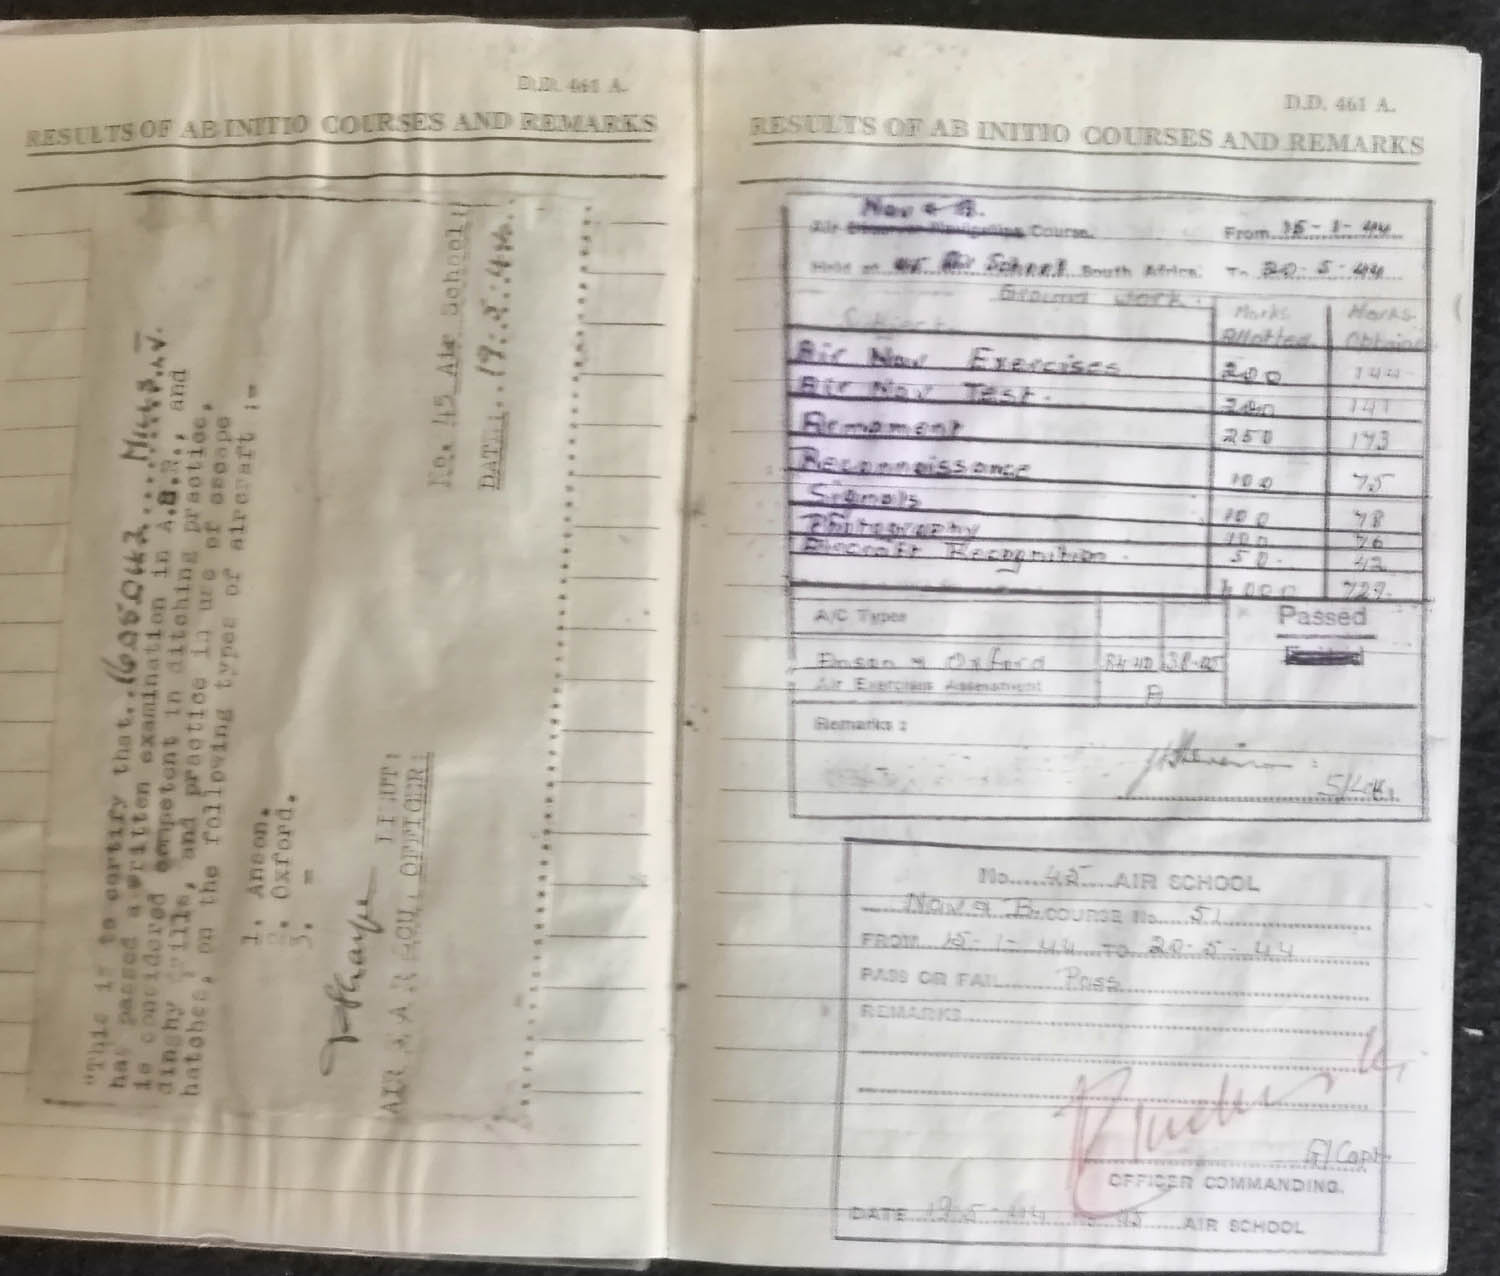 D.D. 461 A.
RESULTS OF AB INITIO COURSES AND REMARKS
"This is to certify that..1605042.... Mills
has passed a written examination in A.S.R., and
is considered competent in ditching practice,
dinghy drills, and practice in use of escape
hatches, on the following types of aircraft :-
1. Anson.
2. Oxford.
3. -
LIEUT:
AIR OFFICER:
No. 45 Air School
DATE...19.5.44..
D.D. 461 A.
RESULTS OF AB INITIO COURSES AND REMARKS
Nav & B.
Air Observer Navigation Course. From 15-1-44
Held at 45 Air School South Africa. To 20-5-44
Ground Work.
Subject Marks Allotted Marks Obtained
Air Nav Exercises 200 144
Air Nav Test. 200 141
Armament 250 173
Reconnaissance 100 75
Signals 100 78
Photography 100 76
Aircraft Recognition. 50. 42
1000 729.
A/C Types
Passed
Anson & Oxford 84.40 38.05
Air Exercises Assessment A
Remarks :
S/Ldr.
No. 45 AIR SCHOOL
Nav & B. COURSE No. 51
FROM 15-1-44 TO 20-5-44
PASS OR FAIL Pass
REMARKS
G/Capt
OFFICER COMMANDING.
DATE 19-5-44 No 45 AIR SCHOOL